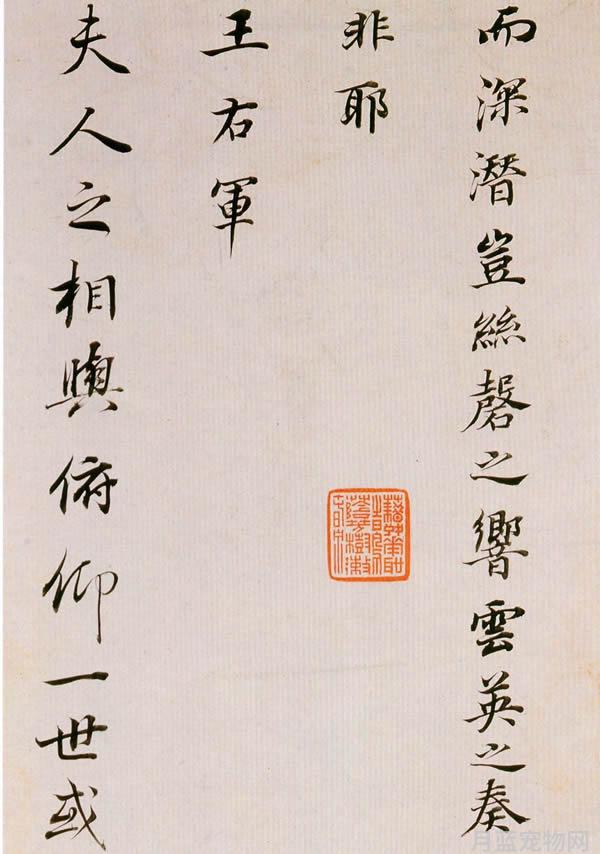 而深潛豈絲磬之響雲英之奏
非耶
王右軍
夫人之相與俯仰一世或
月蓝宠物网